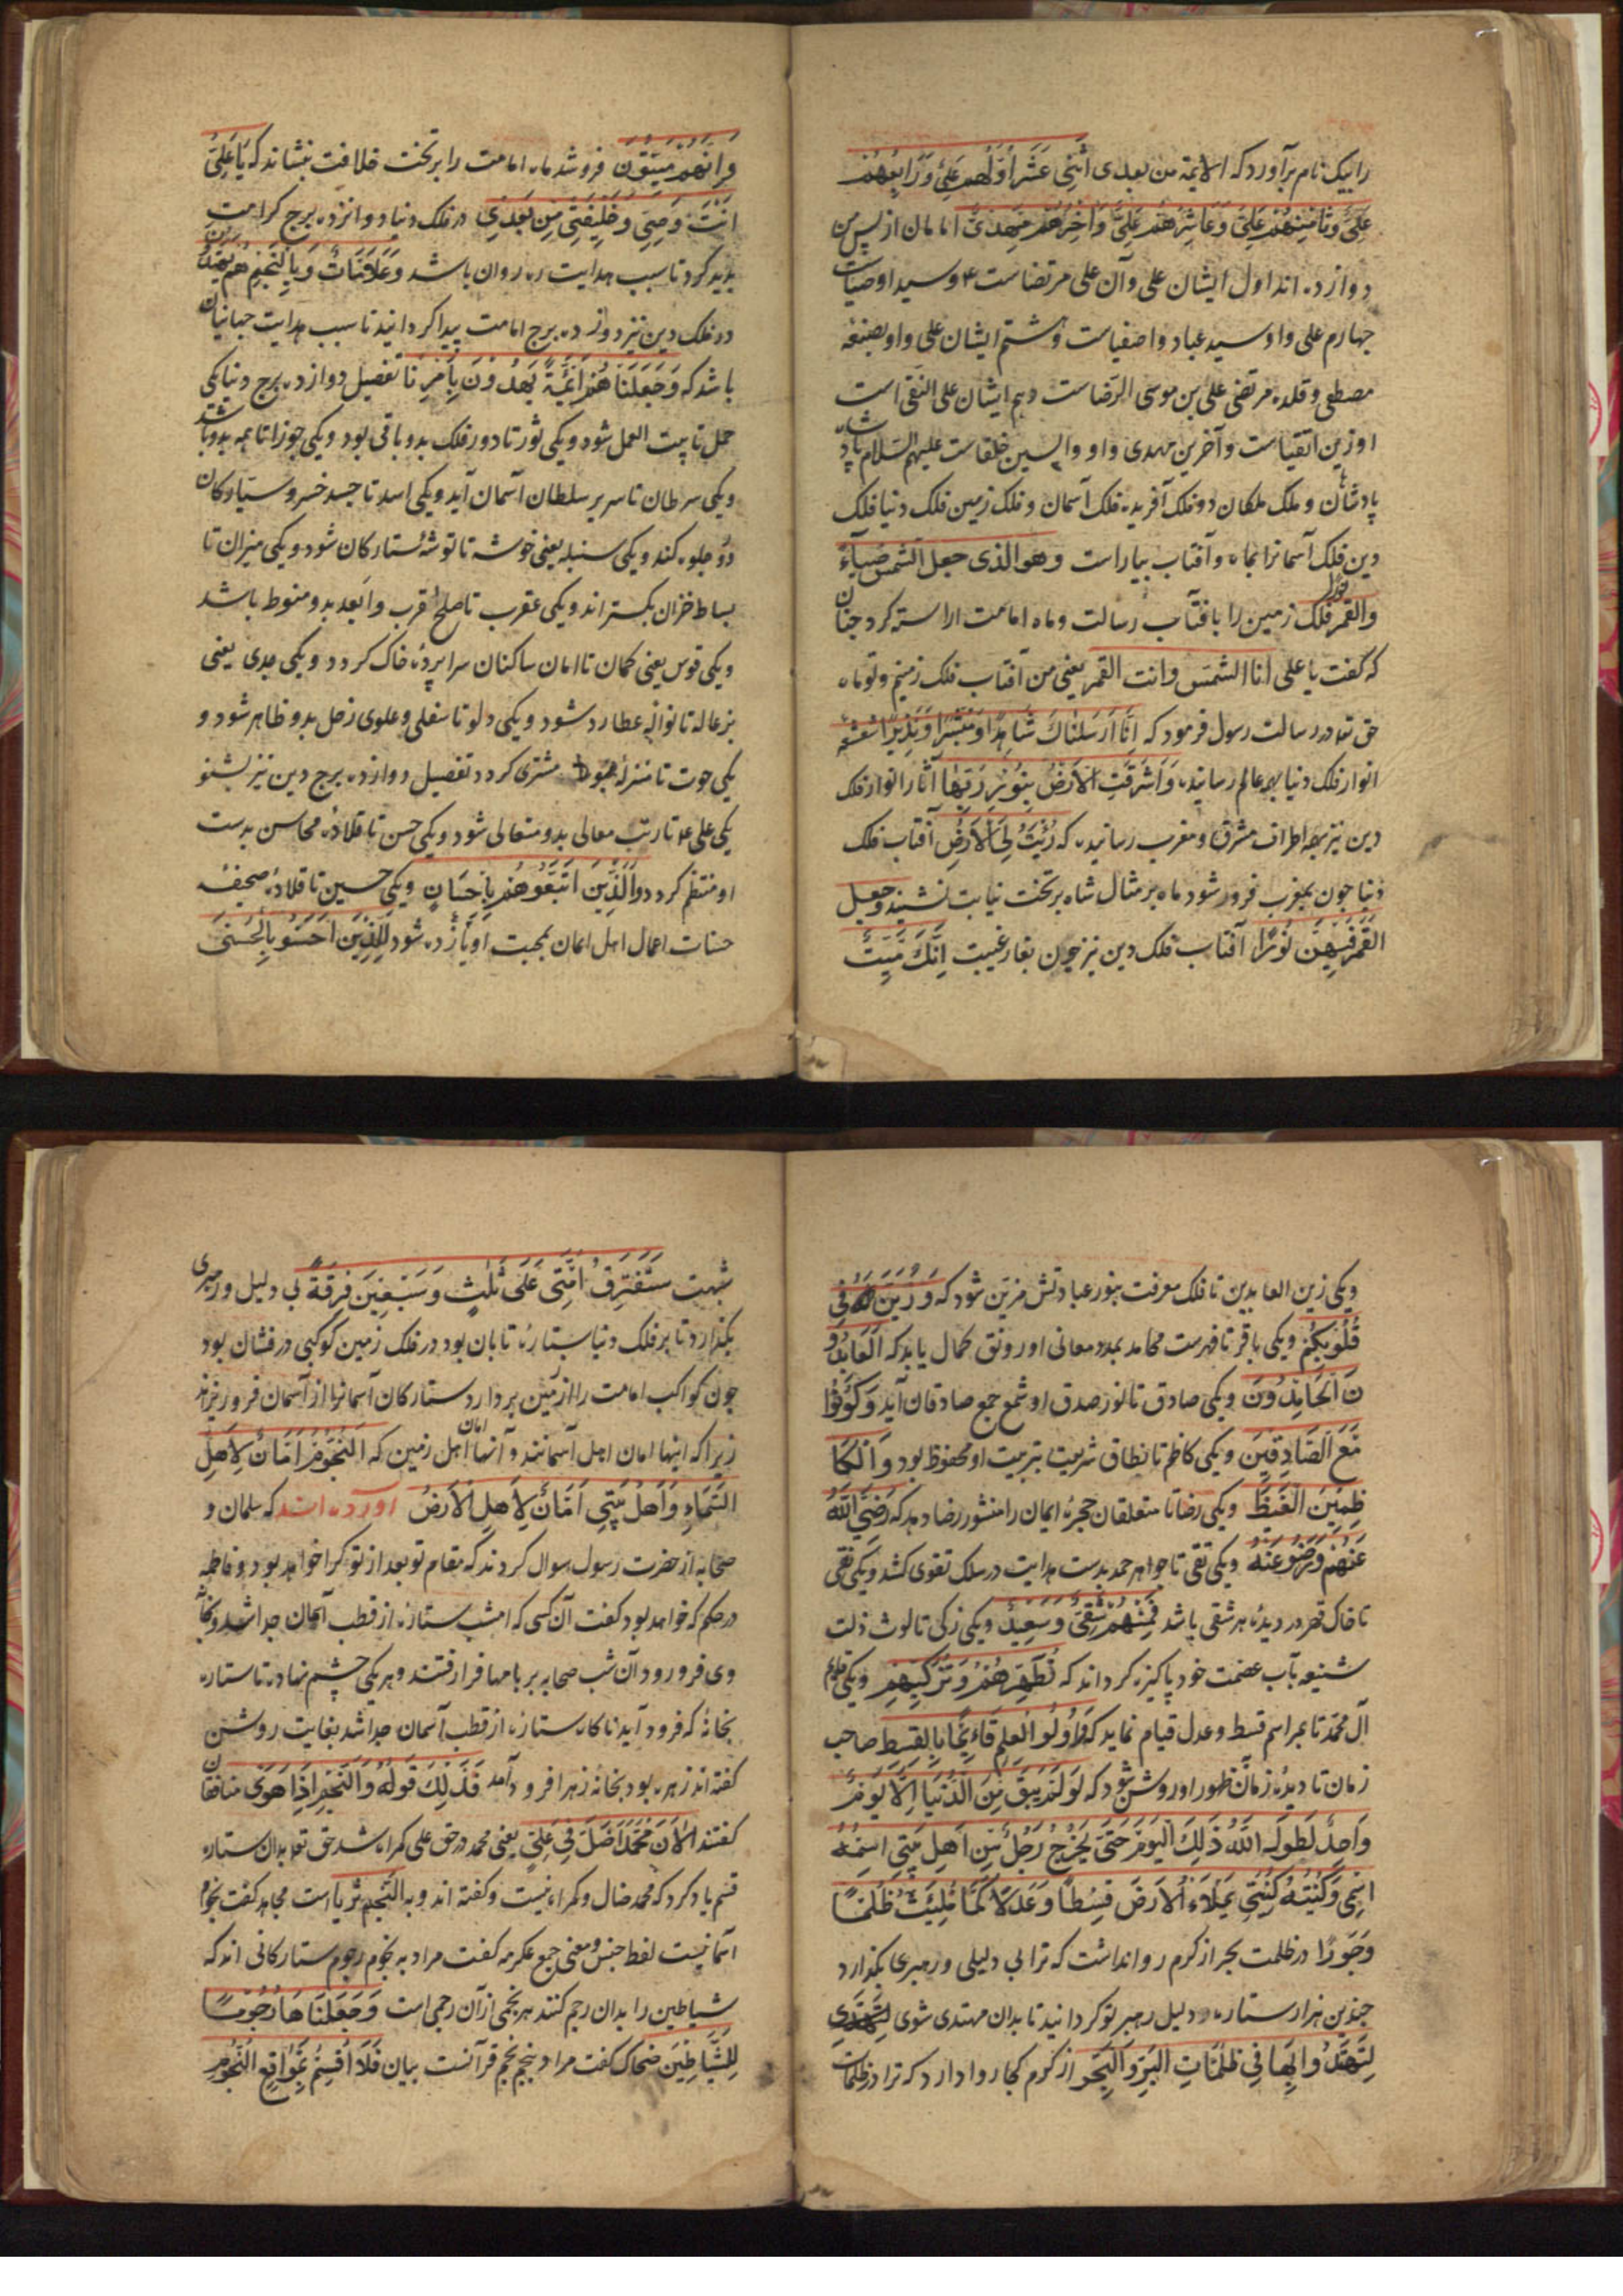 را بیک نام برآورد که الائمة من بعدی اثنی عشر اولهم علی و رابعهم
علی و ثامنهم علی و عاشرهم علی و آخرهم مهدی امامان از پس من
دوازده اند اول ایشان علی و آن علی مرتضاست ع و سید اوصیاست
چهارم علی و او سید عباد و اصفیاست و هشتم ایشان علی و او بضعه
مصطفی و قلده مرتضی علی بن موسی الرضاست دهم ایشان علی النقی است
او زین اتقیاست و آخرین مهدی و او واپسین خلفاست علیهم السلام پادشاه
پادشاهان و ملک ملکان دو فلک آفریده فلک آسمان و فلک زمین فلک دنیا فلک
دین فلک آسمانرا بماه و آفتاب بیاراست وهو الذی جعل الشمس ضیآء
والقمر نورا فلک زمین را بافتاب رسالت و ماه امامت اراسته کرد چنان
که گفت یا علی انا الشمس وانت القمر یعنی من آفتاب فلک زمینم و تو ماه
حق تعه در رسالت رسول فرمود که اِنّا اَرسلناک شاهدا ومبشرا ونذیرا شعشعه
انوار فلک دنیا بهمه عالم رسانیده واشرقت الارض بنور ربها آثار انوار فلک
دین نیز بهمه اطراف مشرق و مغرب رسانیده که زُوِیَت لی الارض آفتاب فلک
دنیا چون بمغرب فرور شود ماه بر مثال شاه بر تخت نیابت نشیند وجعل
القمر فیهن نورا آفتاب فلک دین نیز چون بغار غیبت انک میت
وانهم میتون فروشد ماه امامت را بر تخت خلافت بنشاند که یا علی
انت وصیی وخلیفتی من بعدی در فلک دنیا دوانزده برج کرامت
پدید کرد تا سبب هدایت ره روان باشد وعلامات وبالنجم هم یهتدون
در فلک دین نیز دوازده برج امامت پیدا کردانید تا سبب هدایت جهانیان
باشد که وجعلناهم ائمة یهدون بامرنا تفصیل دوازده برج دنیا یکی
حمل تا بیت العمل شود و یکی ثور تا دور فلک بدو باقی بود و یکی جوزا تا همه بدو باشد
و یکی سرطان تا سریر سلطان آسمان آید و یکی اسد تا جسد خسرو سیارکان
دو جلوه کند و یکی سنبله یعنی خوشه تا توشه ستارکان شود و یکی میزان تا
بساط خزان بکستراند و یکی عقرب تا صلح اقرب وابعد بدو منوط باشد
و یکی قوس یعنی کمان تا امان ساکنان سراپرده خاک کردد و یکی جدی یعنی
بزعاله تا نواله عطارد شود و یکی دلو تا سفلی و علوی زحل بدو ظاهر شود و
یکی حوت تا منزله هبوط مشتری کردد تفصیل دوازده برج دین نیز بشنو
یکی علی ع تا رتب معالی بدو متعالی شود و یکی حسن تا قلاده محاسن بدست
او منتظم کردد والذین اتبعوهم باحسان و یکی حسین تا قلاده صحیفه
حسنات اعمال اهل ایمان بمحبت او تازه شود للذین احسنوا بالحسنی
و یکی زین العابدین تا فلک معرفت بنور عبادتش مزین شود که وزینه فی
قلوبکم و یکی باقر تا فهرست محامد بمدد معانی او رونق کمال یابد که العابدو
ن الحامدون و یکی صادق تا نور صدق او شمع جمع صادقان آید وکونوا
مع الصادقین و یکی کاظم تا نطاق شریعت بتربیت او محفوظ بود والکا
ظمین الغیظ و یکی رضا تا متعلقان حجره ایمان را منشور رضا دهد که رضی الله
عنهم ورضوا عنه و یکی تقی تا جواهر حمد بدست هدایت در سلک تقوی کشد و یکی نقی
تا خاک قهر در دیده هر شقی باشد فمنهم شقی وسعید و یکی زکی تا لوث ذلت
شنیعه بآب عصمت خود پاکیزه کرداند که تطهرهم وتزکیهم و یکی قایم
آل محمد تا بمراسم قسط و عدل قیام نماید که واولو العلم قائما بالقسط صاحب
زمان تا دیده زمان ظهور او روشن شود که لو لم یبق من الدنیا الا یوم
واحد لطول الله ذلک الیوم حتی یخرج رجل من اهل بیتی اسمه
اسمی وکنیته کنیتی یملاء الارض قسطا وعدلا کما ملئت ظلما
وجورا در ظلمت بحر از کرم روا نداشت که ترا بی دلیلی و رهبری بکذارد
چندین هزار ستاره دلیل رهبر تو کردانید تا بدان مهتدی شوی
لتهتدوا بها فی ظلمات البر والبحر از کرم کجا روا دارد که ترا در ظلمات
شبهت ستفترق امتی علی ثلث وسبعین فرقة بی دلیل و رهبری
بکذارد تا بر فلک دنیا ستاره تابان بود در فلک زمین کوکبی درفشان بود
چون کواکب امامت را از زمین بردارد ستارکان آسمانرا از آسمان فرو ریزند
زیرا که اینها امان اهل آسمانند و آنها امان اهل زمین که النجوم امان لاهل
السماء واهل بیتی امان لاهل الارض آورده اند که سلمان و
صحابه از حضرت رسول سوال کردند که مقام تو بعد از تو کرا خواهد بود و فاطمه
در حکم که خواهد بود کفت آن کسی که امشب ستاره از قطب آسمان جدا شد و بخانه
وی فرو رود آن شب صحابه بر بامها فرا رفتند و هر یکی چشم نهاده تا ستاره
بخانه که فرود آید ناکاه ستاره از قطب آسمان جدا شد بغایت روشن
کفته اند زهره بود بخانه زهرا فرود آمد فذلک قوله والنجم اذا هوی منافقان
کفتند الآن محمد اضل فی علی یعنی محمد در حق علی کمراه شد حق تعه بدان ستاره
قسم یاد کرد که محمد ضال و کمراه نیست و کفته اند و به النجم ثریا است مجاهد کفت نجوم
آسمانیست لفظ جنس و معنی جمع عکرمه کفت مراد به نجوم رجوم ستارکانی اند که
شیاطین را بدان رجم کنند هر نجمی از آن رجمی است وجعلناها رجوما
للشیاطین ضحاک کفت مراد بنجم نجم قرآنست بیان فلا اقسم بمواقع النجوم